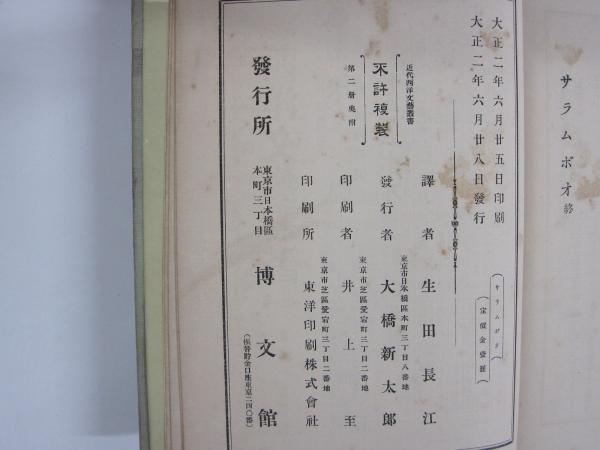 サラムボオ 終
大正二年六月廿五日印刷
大正二年六月廿八日發行
サラムボオ
定價金壹圓
近代西洋文藝叢書
不許複製
第二册奥附
譯者 生田長江
東京市日本橋區本町三丁目八番地
發行者 大橋新太郎
東京市芝區愛宕町三丁目二番地
印刷者 井上至
東京市芝區愛宕町三丁目二番地
印刷所 東洋印刷株式會社
發行所 東京市日本橋區
本町三丁目 博文館
(振替貯金口座東京二四〇番)